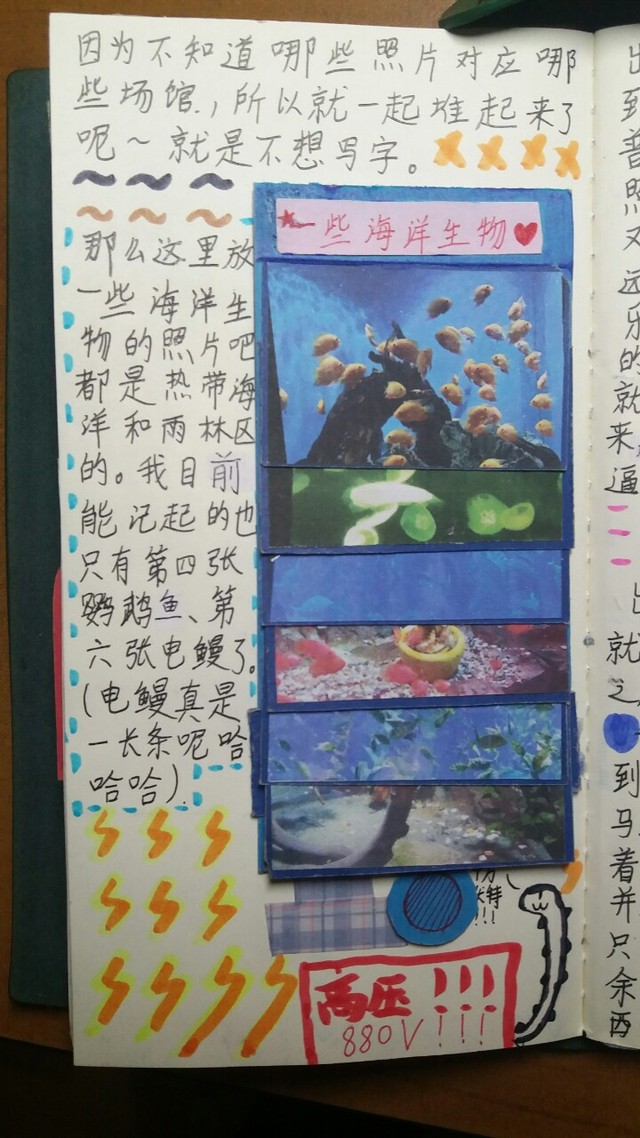 因为不知道哪些照片对应哪
些场馆，所以就一起堆起来了
呢～就是不想写字。
一些海洋生物
那么这里放
一些海洋生
物的照片吧
都是热带海
洋和雨林区
的。我目前
能记起的也
只有第四张
鹦鹉鱼、第
六张电鳗了。
(电鳗真是
一长条呢哈
哈哈).
万
伏特
!!!
高压!!!
880V!!!
出
到
普
照
又
远
乐
的
就
来
逼
就
之,
到
马
着
并
只
余
西